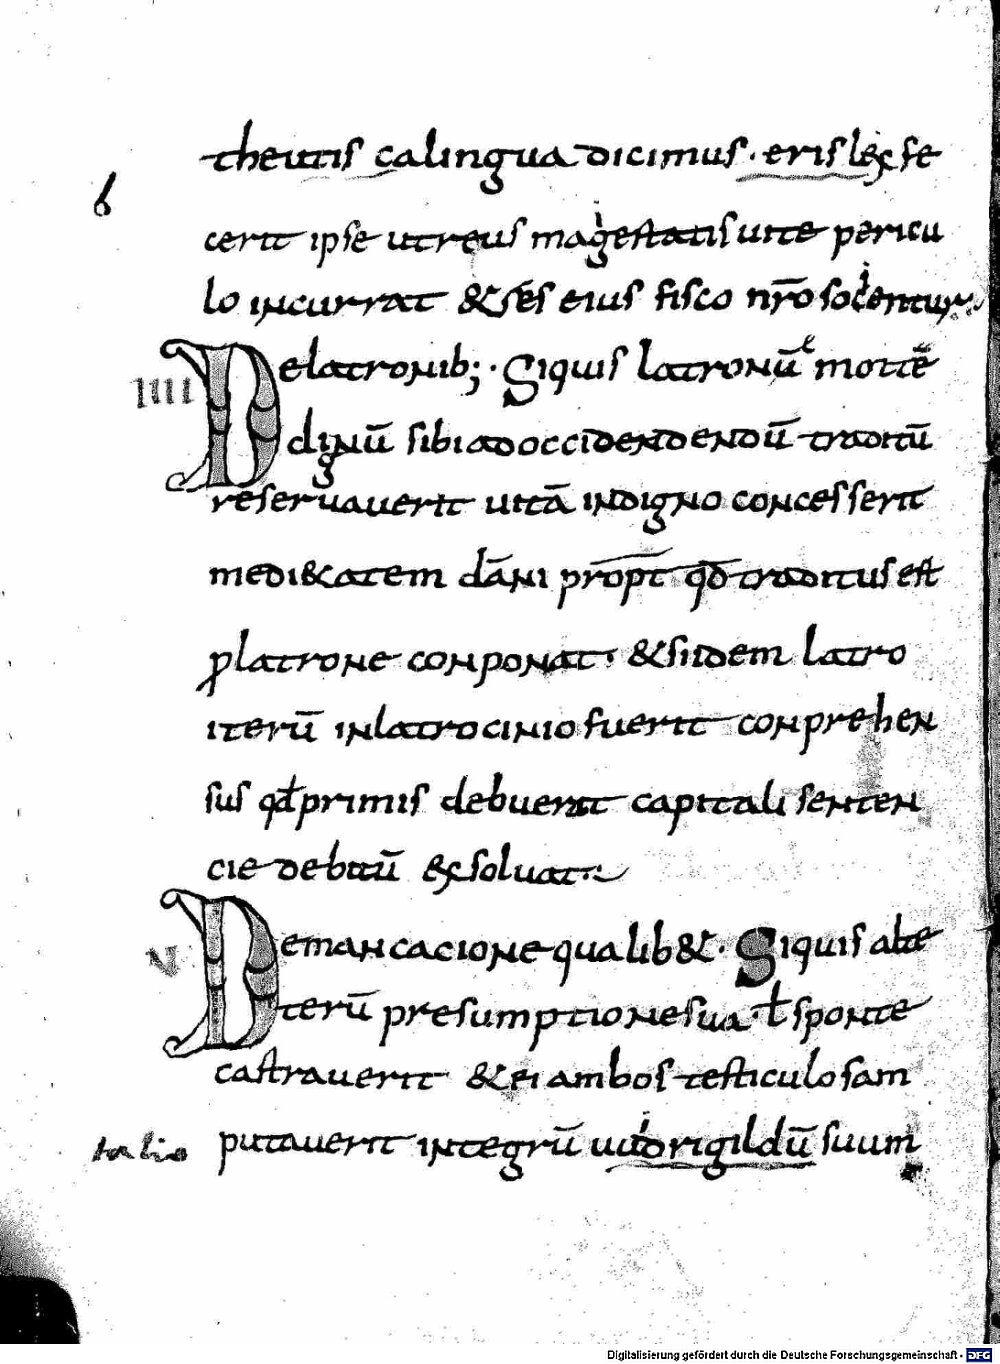 theutis ca lingua dicimus · erisliz se
6
cerit ipse ut reus magestatis uite pericu
lo incurrat &res eius fisco nr̄o socientur
IIII
Delatronib; · Siquis latronū morte
dignū sibi adoccidendendū traditū
reseruauerit uitā indigno concesserit
medi&atem dāni prop̄t qd̄ traditus est
ꝓlatrone conponat · &siidem latro
iterū inlatrocinio fuerit conprehen
sus qd̄ primis debuerat capitali senten
cie debitū &solvat
V
Demancacione qualib& · Siquis al
terū presumptione sua · ł sponte
castrauerit &ei ambos testiculos am
talio
putauerit integrū uuidrigildū suum
Digitalisierung gefördert durch die Deutsche Forschungsgemeinschaft - DFG